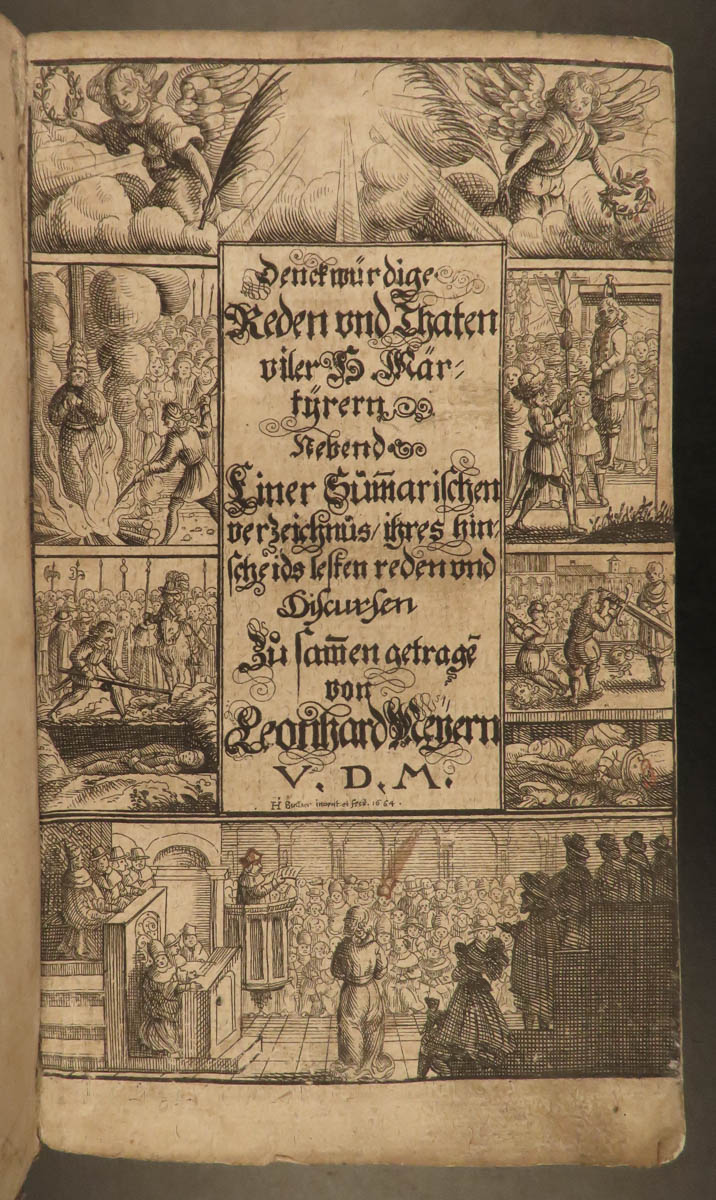 Denckwürdige
Reden vnd Thaten
viler H. Mär-
tÿrern
Nebend
Einer Sum̄arischen
verzeichnus/ ihres hin,
scheids lesten reden vnd
Discursen
Zu sam̄en getragē
von
Leonhard Meÿern
V. D. M.
invent et fecit. 1664.